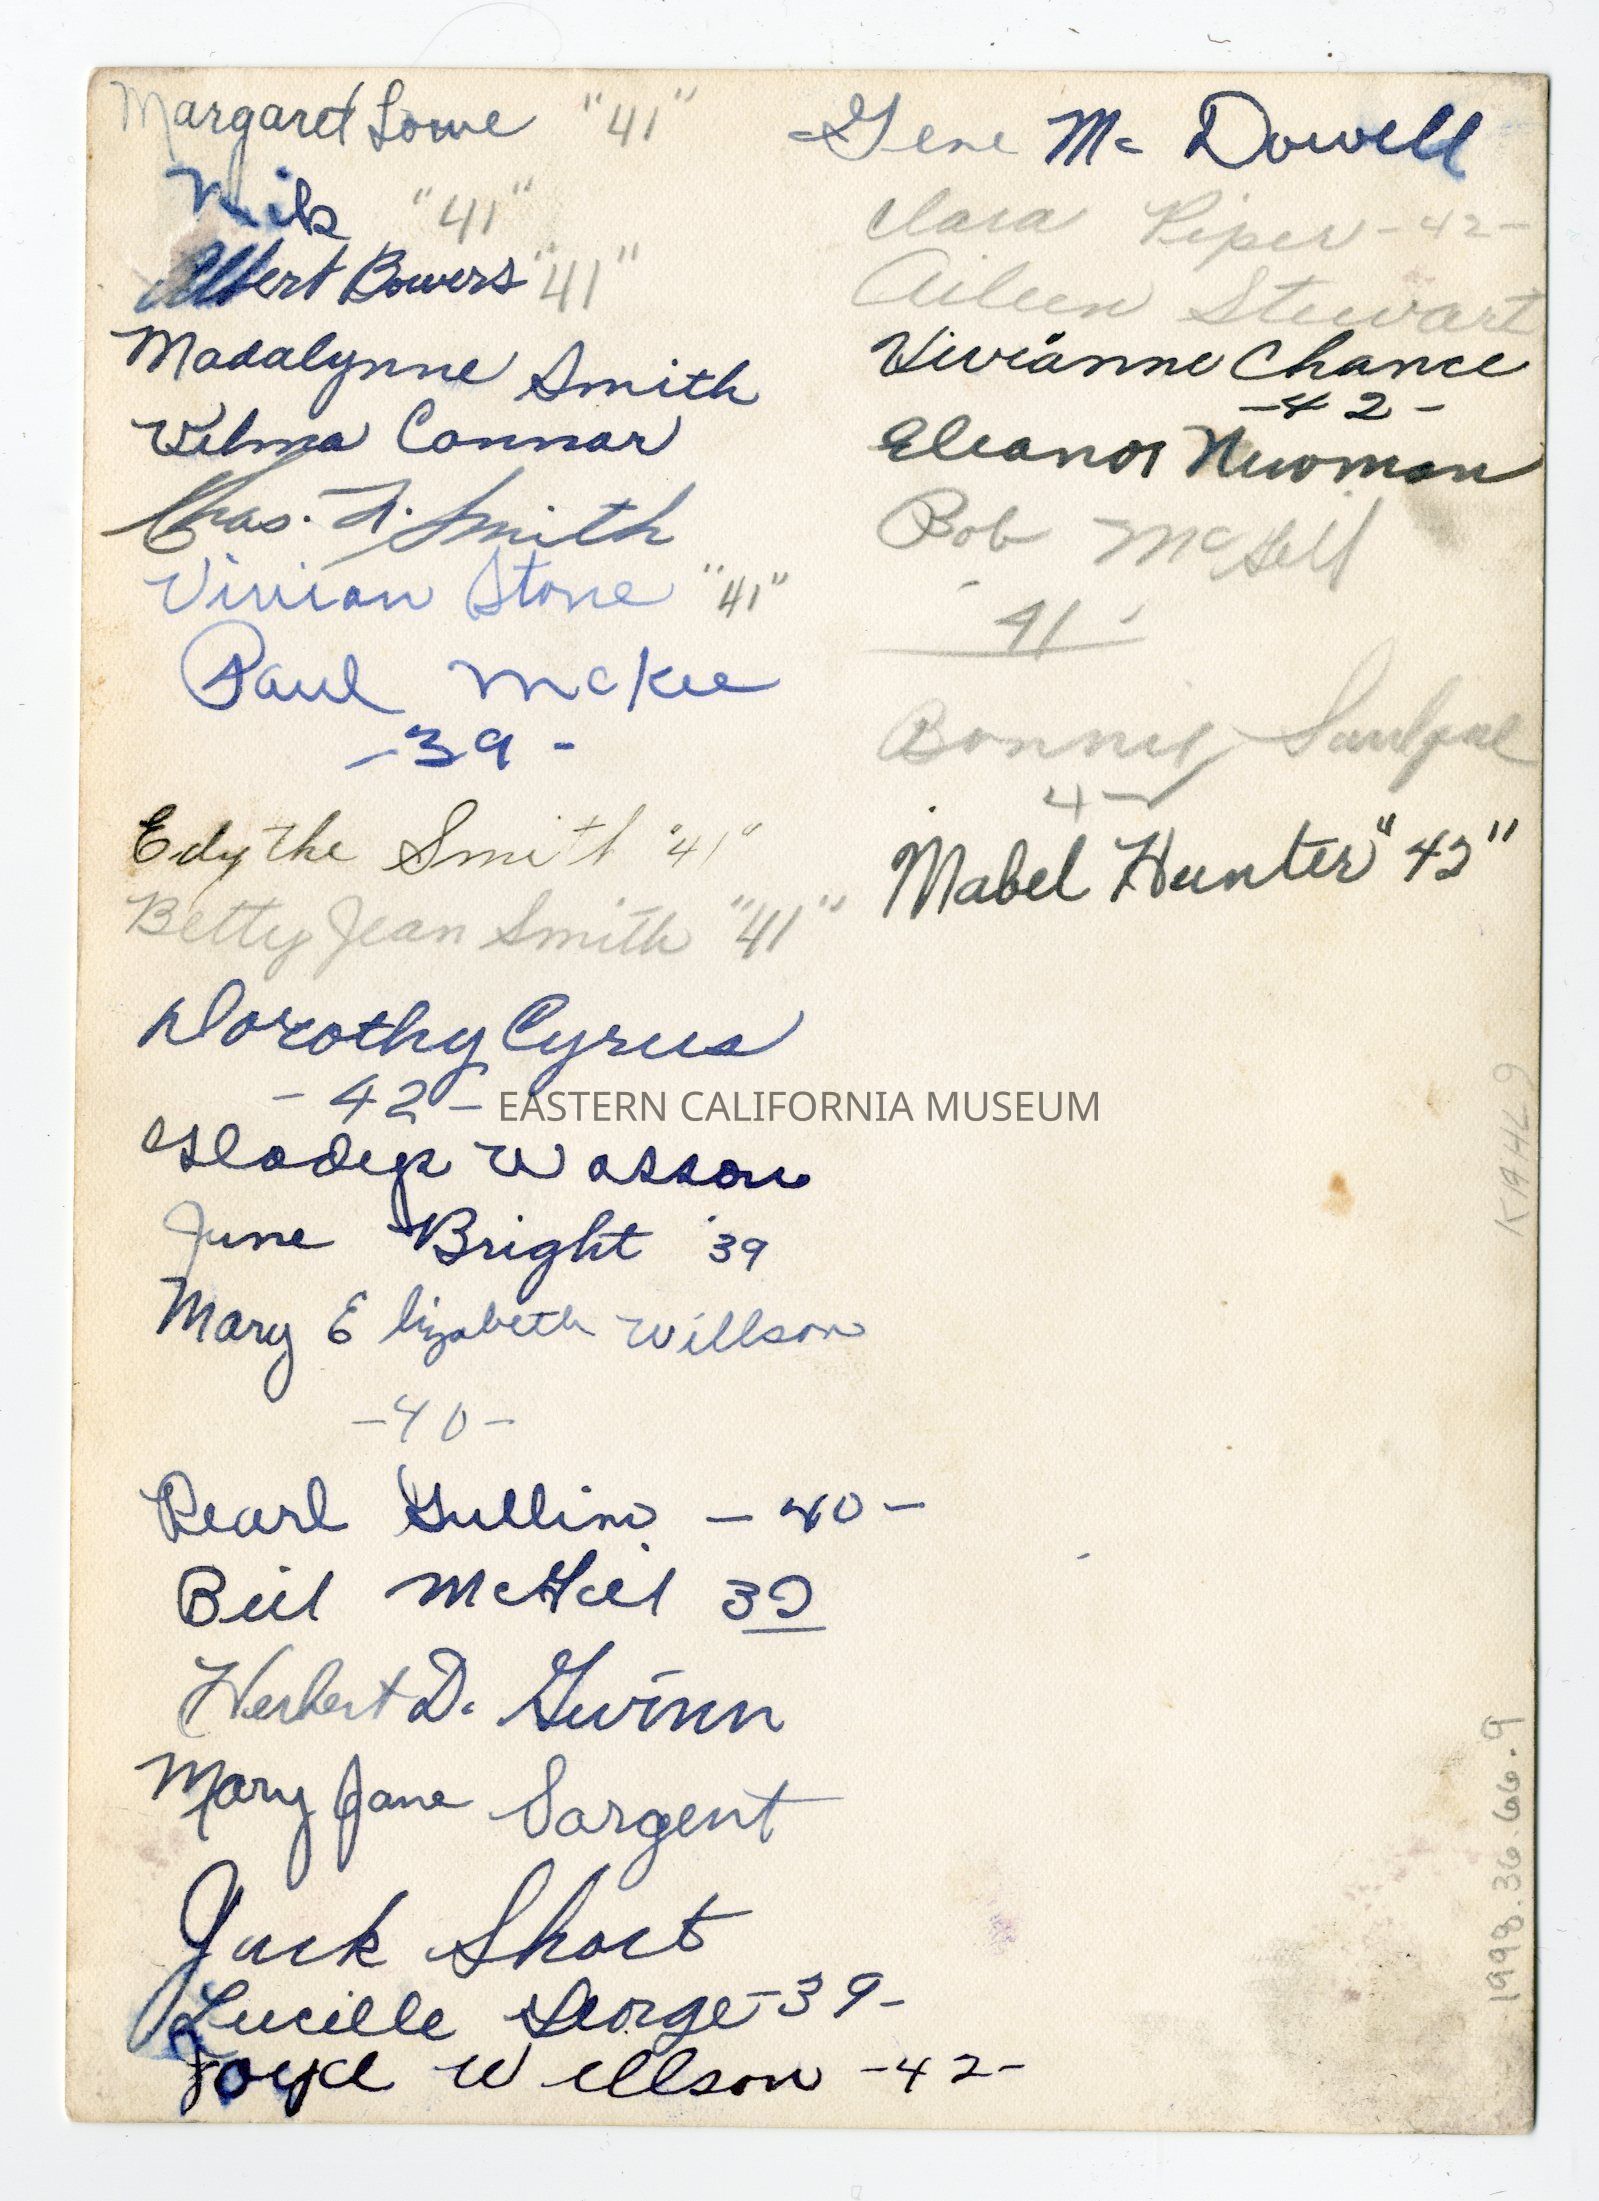 Margaret Lowe "41"
Nik "41"
Albert Bowers "41"
Madalynne Smith
Velma Connor
Chas. F. Smith
Vivian Stone "41"
Paul McKee
-39-
Edythe Smith "41"
Betty Jean Smith "41"
Dorothy Cyrus
-42-
Gladys Wasson
June Bright '39
Mary Elizabeth Willson
-40-
Pearl Gullim -40-
Bill McGill 39
Herbert D. Gwinn
Mary Jane Sargent
Jack Short
Lucille George -39-
Joyce Willson -42-
Gene Mc Dowell
Clara Piper -42-
Aileen Stewart
Vivianne Chance
-42-
Eleanor Newman
Bob McGill
-41-
Bonny
Mabel Hunter "42"
EASTERN CALIFORNIA MUSEUM
1998.36.66.9